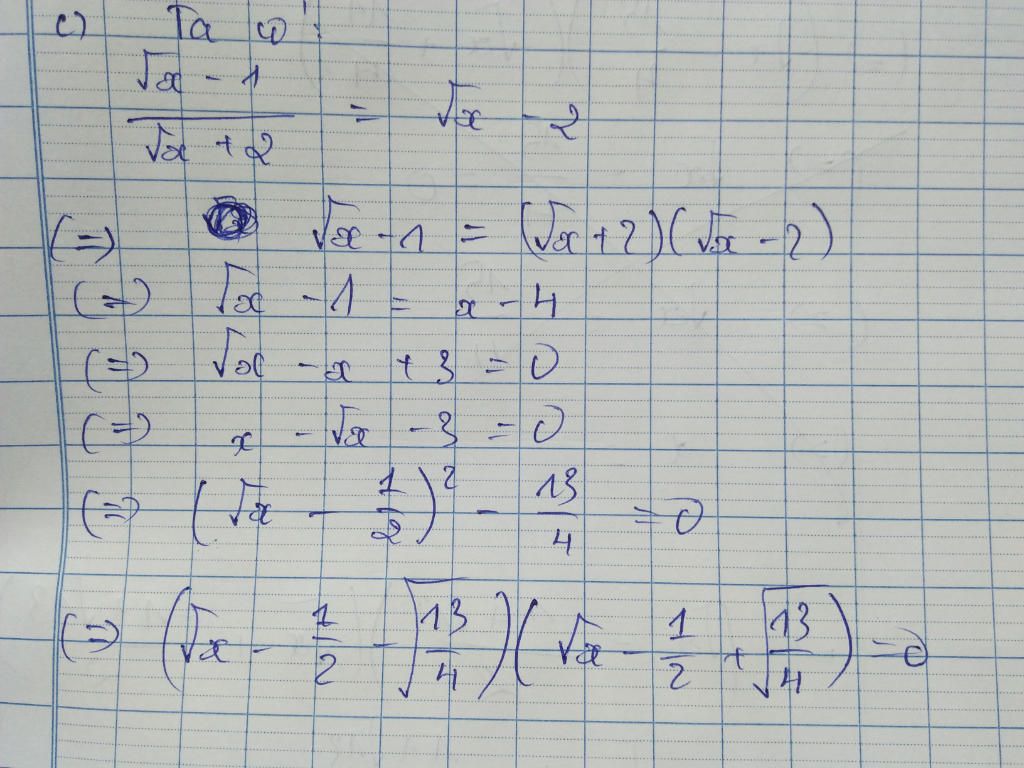 c) Ta có:
(√x - 1)/(√x + 2) = √x - 2
(=) √x - 1 = (√x + 2)(√x - 2)
(=) √x - 1 = x - 4
(=) √x - x + 3 = 0
(=) x - √x - 3 = 0
(=) (√x - 1/2)² - 13/4 = 0
(=) (√x - 1/2 - √(13/4))(√x - 1/2 + √(13/4)) = 0